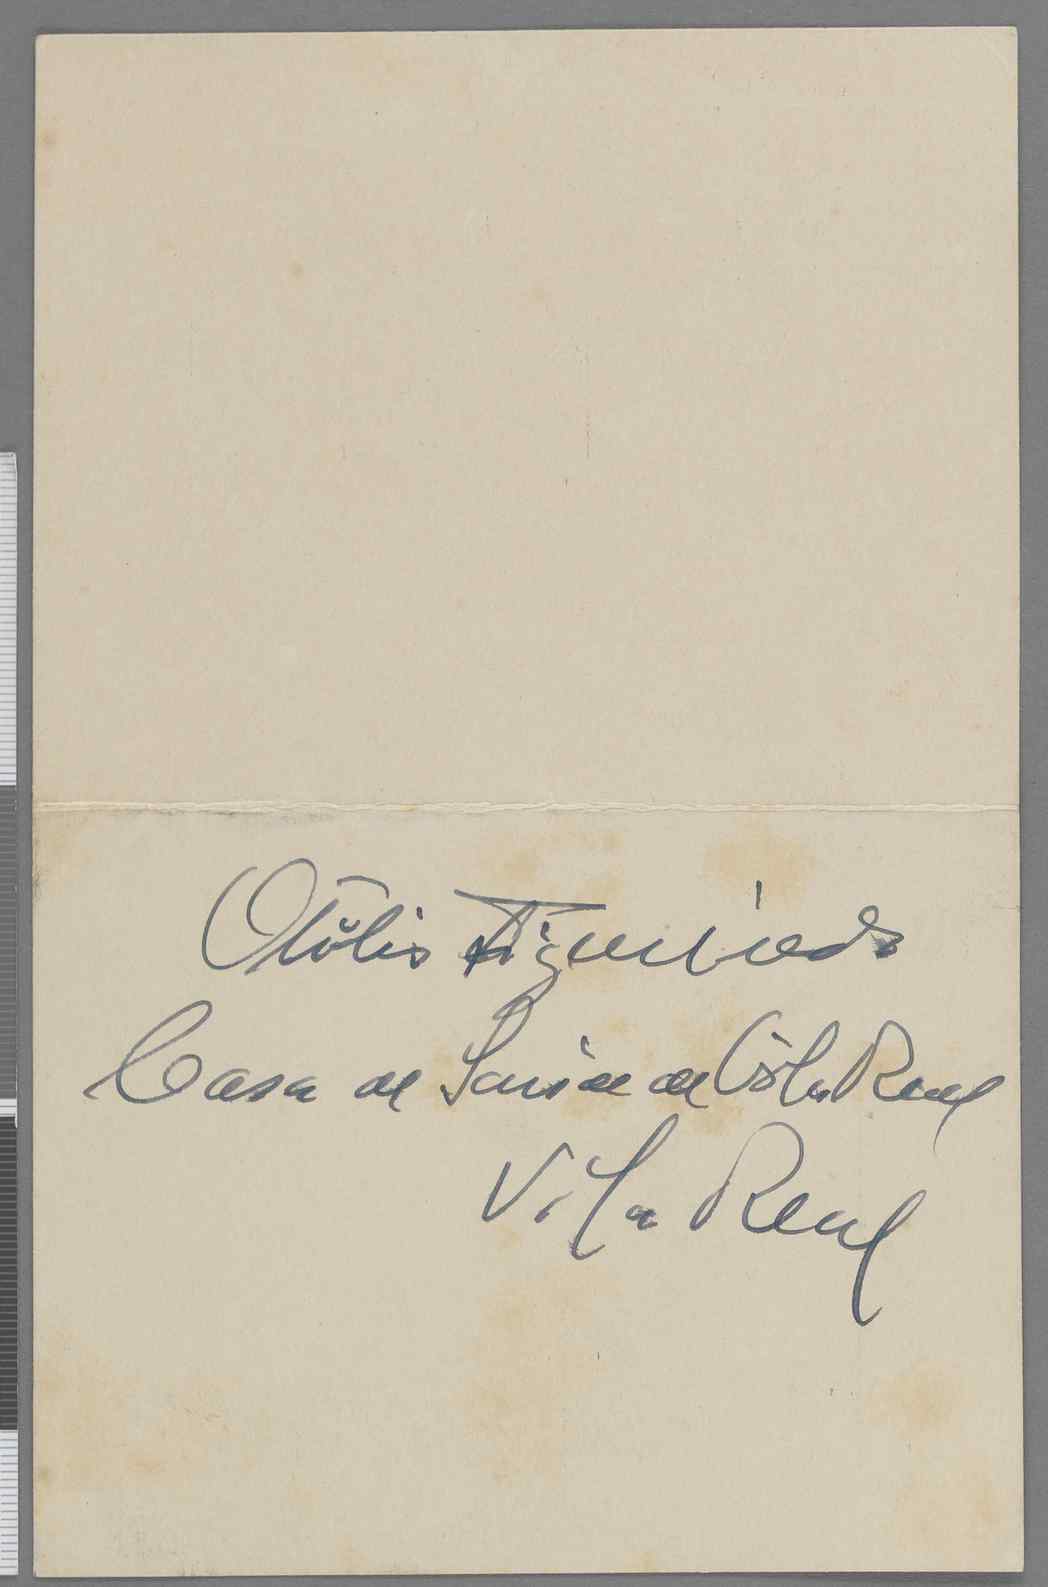 Otílio Figueiredo
Casa de Saúde de Vila Real
Vila Real